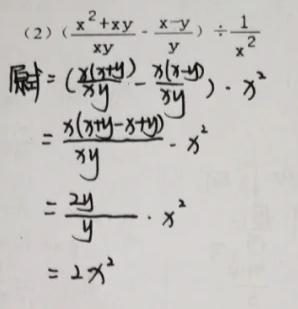 (2) (\frac{x^2+xy}{xy} - \frac{x-y}{y}) ÷ \frac{1}{x^2}
原式 = (\frac{x(x+y)}{xy} - \frac{x(x-y)}{xy}) · x^2
= \frac{x(x+y-x+y)}{xy} · x^2
= \frac{2y}{y} · x^2
= 2x^2